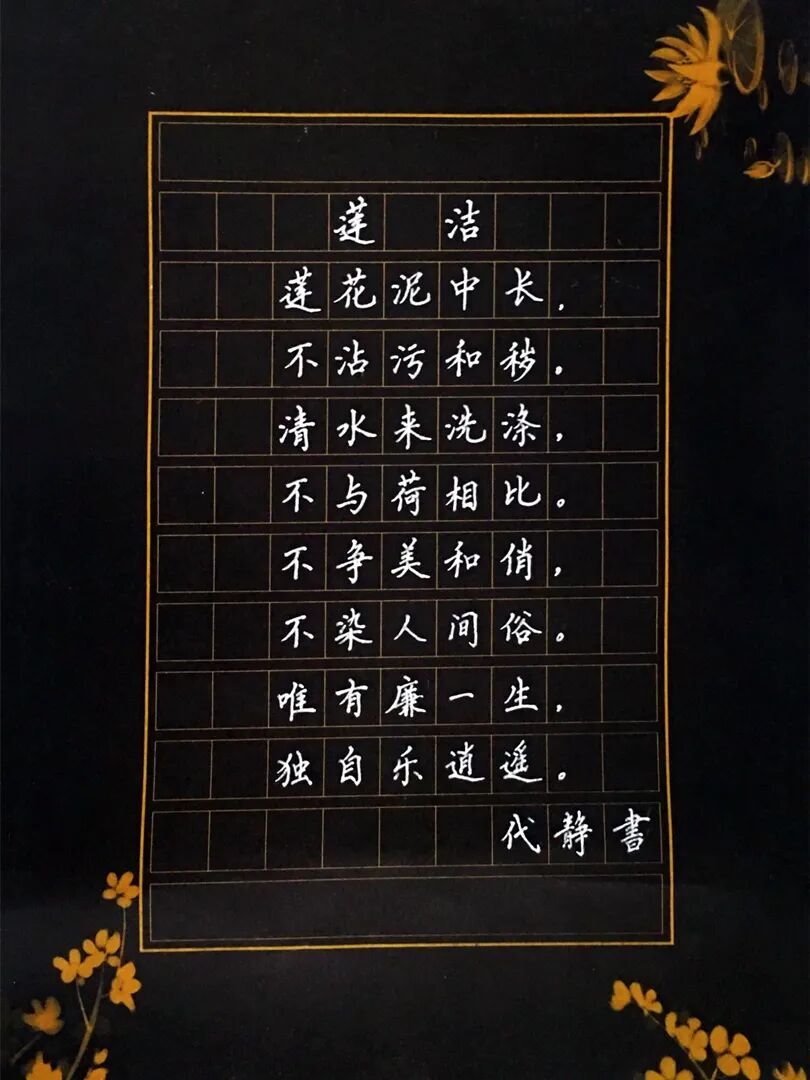 莲 洁
莲花泥中长，
不沾污和秽。
清水来洗涤，
不与荷相比。
不争美和俏，
不染人间俗。
唯有廉一生，
独自乐逍遥。
代静書